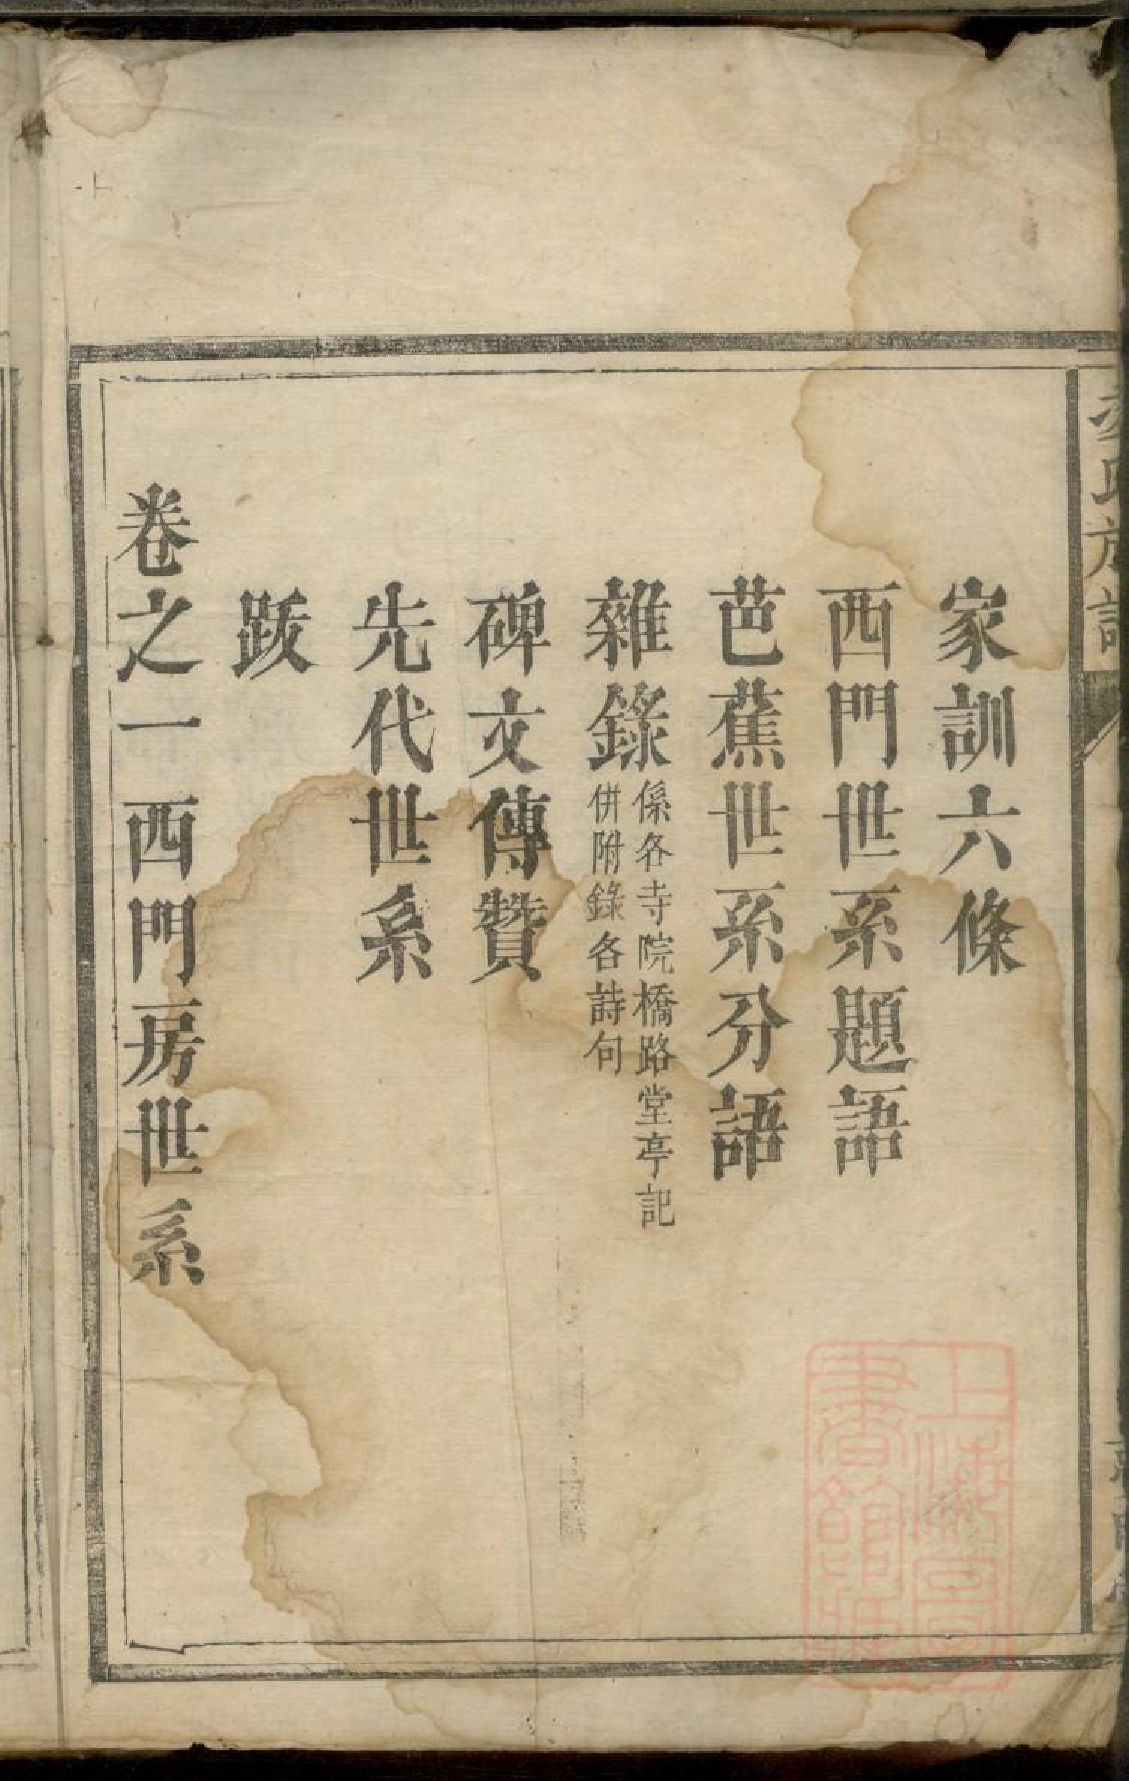 家訓六條
西門世系題語
芭蕉世系分語
雜錄係各寺院橋路堂亭記
併附錄各詩句
碑文傳贊
先代世系
跋
卷之一西門房世系
上海圖
書館藏